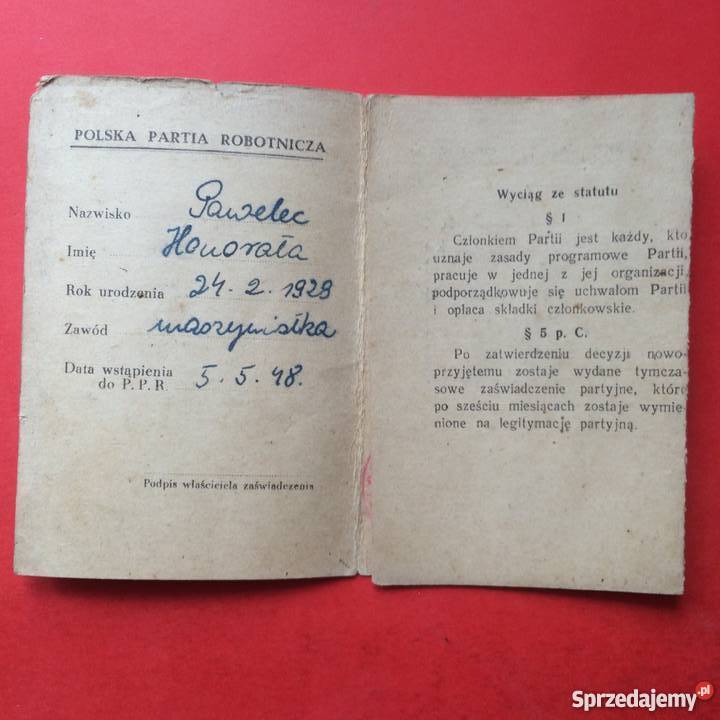 POLSKA PARTIA ROBOTNICZA
Nazwisko Pawelec
Imię Honorata
Rok urodzenia 24.2.1929
Zawód maszynistka
Data wstąpienia
do P.P.R. 5.5.48.
Podpis właściciela zaświadczenia
Wyciąg ze statutu
§ 1
Członkiem Partii jest każdy, kto
uznaje zasady programowe Partii,
pracuje w jednej z jej organizacji,
podporządkowuje się uchwałom Partii
i opłaca składki członkowskie.
§ 5 p. C.
Po zatwierdzeniu decyzji nowo-
przyjętemu zostaje wydane tymcza-
sowe zaświadczenie partyjne, które
po sześciu miesiącach zostaje wymie-
nione na legitymację partyjną.
Sprzedajemy.pl